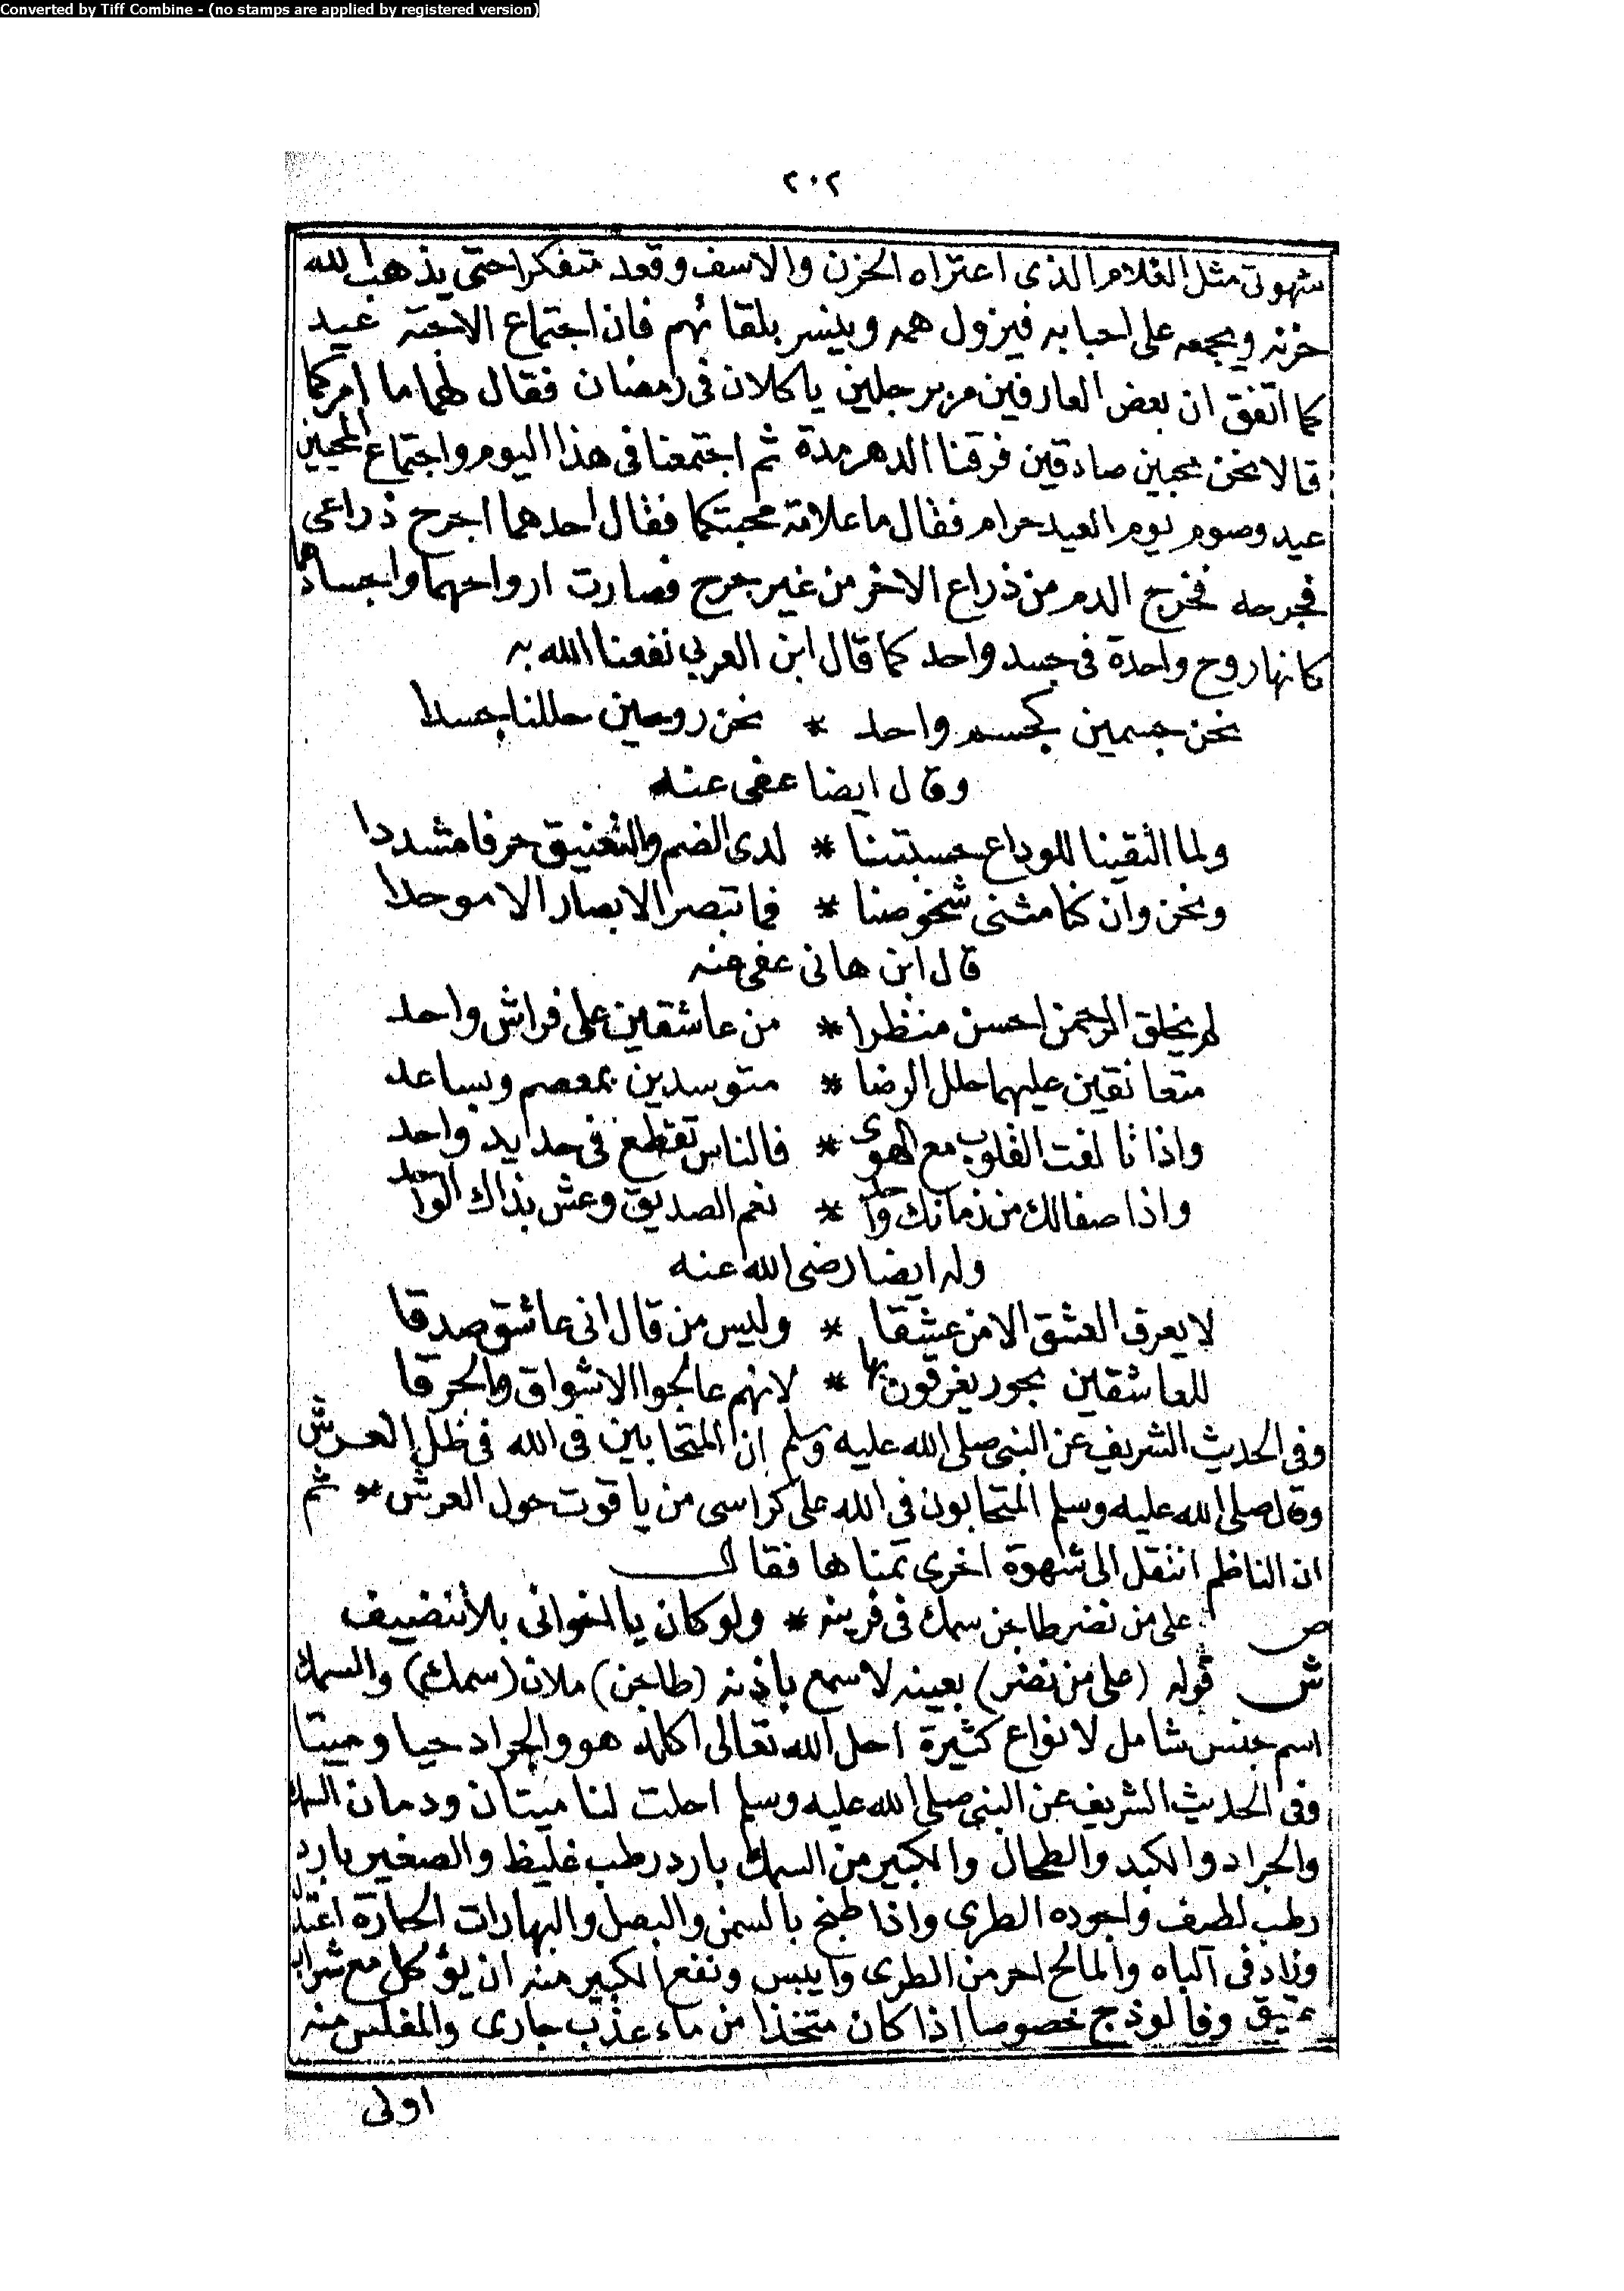 Converted by Tiff Combine - (no stamps are applied by registered version)
٢٠٢
شهوتى مثل الغلام الذى اعتراه الحزن والاسف وقعد متفكرا حتى يذهب الله
حزنه ويجمعه على احبابه فيزول همه وينسر بلقائهم فان اجتماع الاحبة عيد
كما اتفق ان بعض العارفين مر برجلين ياكلان فى رمضان فقال لهما ما امركما
قالا نحن محبين صادقين فرقنا الدهر مدة ثم اجتمعنا فى هذا اليوم واجتماع المحبين
عيد وصوم يوم العيد حرام فقال ما علامة محبتكما فقال احدهما اجرح ذراعى
فجرحه فخرج الدم من ذراع الاخر من غير جرح فصارت ارواحهما واجسادهما
كانها روح واحدة فى جسد واحد كما قال ابن العربى نفعنا الله به
نحن جسمين كجسم واحد * نحن روحين حللنا جسدا
وقال ايضا عفى عنه
ولما التقينا للوداع حسبتنا * لدى الضم والتعنيق حرفا مشددا
ونحن وان كنا مثنى شخوصنا * فما تبصر الابصار الا موحدا
قال ابن هانى عفى عنه
لم يخلق الرحمن احسن منظرا * من عاشقين على فراش واحد
متعانقين عليهما حلل الرضا * متوسدين بمعصم وبساعد
واذا تالفت القلوب مع الهوى * فالناس تقطع فى حديد واحد
واذا صفالك من زمانك واحد * نعم الصديق وعش بذاك الواحد
وله ايضا رضى الله عنه
لا يعرف العشق الا من عشقا * وليس من قال انى عاشق صدقا
للعاشقين بحور يغرقون بها * لانهم عالجوا الاشواق والحرقا
وفى الحديث الشريف عن النبى صلى الله عليه وسلم ان المتحابين فى الله فى ظل العرش
وقال صلى الله عليه وسلم المتحابون فى الله على كراسى من ياقوت حول العرش * ثم
ان الناظم انتقل الى شهوة اخرى تمناها فقال
ص على من نضر طاجن سمك فى فرينه * ولو كان يا اخوانى بلا تنضيف
ش قوله (على من نضر) بعينه لا سمع باذنه (طاجن) ملان (سمك) والسمك
اسم جنس شامل لانواع كثيرة احل الله تعالى اكله هو والجراد حيا وميتا
وفى الحديث الشريف عن النبى صلى الله عليه وسلم احلت لنا ميتان ودمان السمك
والجراد والكبد والطحال والكبير من السمك بارد رطب غليظ والصغير بارد
رطب لطيف واجوده الطرى واذا طبخ بالسمن والبصل والبهارات الحارة اعتدل
وزاد فى الباه والمالح احر من الطرى وايبس ونفع الكبير منه ان يؤكل مع شراب
عتيق وفالوذج خصوصا اذا كان متخذا من ماء عذب جارى والمفلس منه
اولى